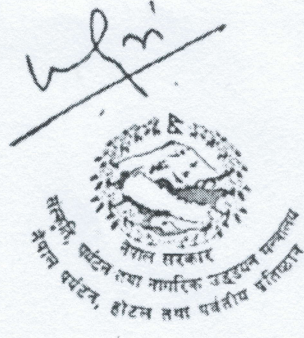 नेपाल सरकार
संस्कृति, पर्यटन तथा नागरिक उड्डयन मन्त्रालय
नेपाल पर्यटन, होटल तथा पर्वतीय प्रतिष्ठान